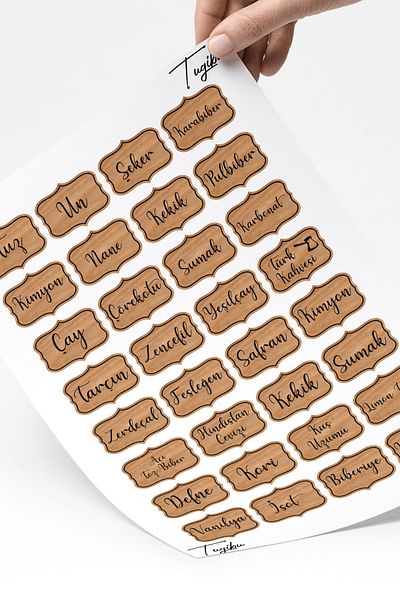 Tugibu
Karabiber
Şeker
Pulbiber
Un
Kekik
Karbonat
Tuz
Nane
Sumak
Türk
Kahvesi
Kimyon
Çörekotu
Yeşilçay
Kimyon
Çay
Zencefil
Safran
Sumak
Tarçın
Fesleğen
Kekik
Limon
Zerdeçal
Hindistan
Cevizi
Kuş
Üzümü
Acı
Toz Biber
Köri
Biberiye
Defne
İsot
Vanilya
Tugibu